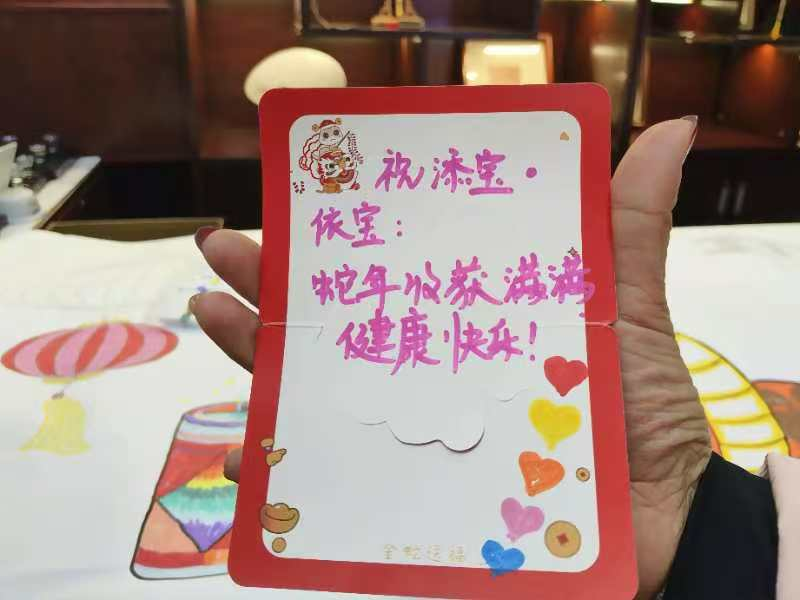 祝添宝·
依宝:
蛇年收获满满,
健康快乐!
金蛇运福